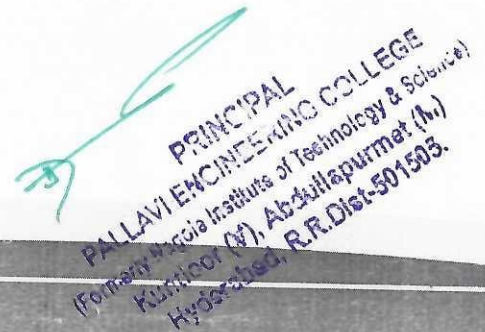 PRINCIPAL
PALLAVI ENGINEERING COLLEGE
(Formerly Institute of Technology & Science)
(V), Abdullapurmet (M.)
Hyderabad, R.R.Dist-501505.